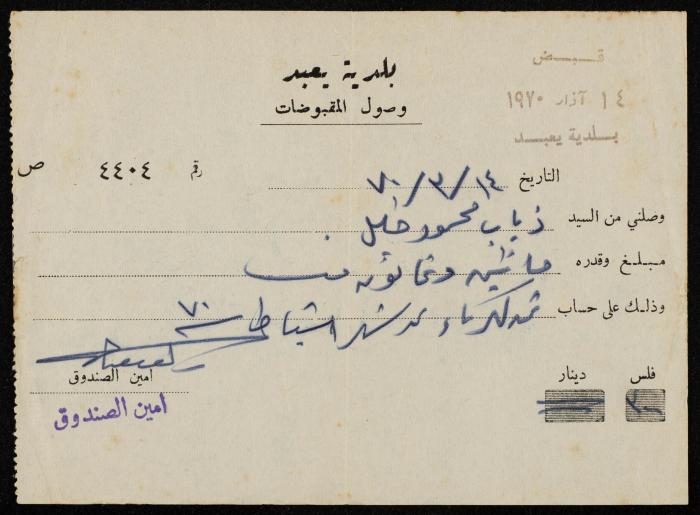 قبض
١٤ آذار ١٩٧٠
بلدية يعبد
بلدية يعبد
وصول المقبوضات
رقم ٤٤٠٤ ص
التاريخ ١٤/٣/٧٠
وصلني من السيد ذياب محمود خليل
مبلغ وقدره
وذلك على حساب ثمن كهرباء عن شهر شباط ٧٠
فلس دينار
امين الصندوق
امين الصندوق